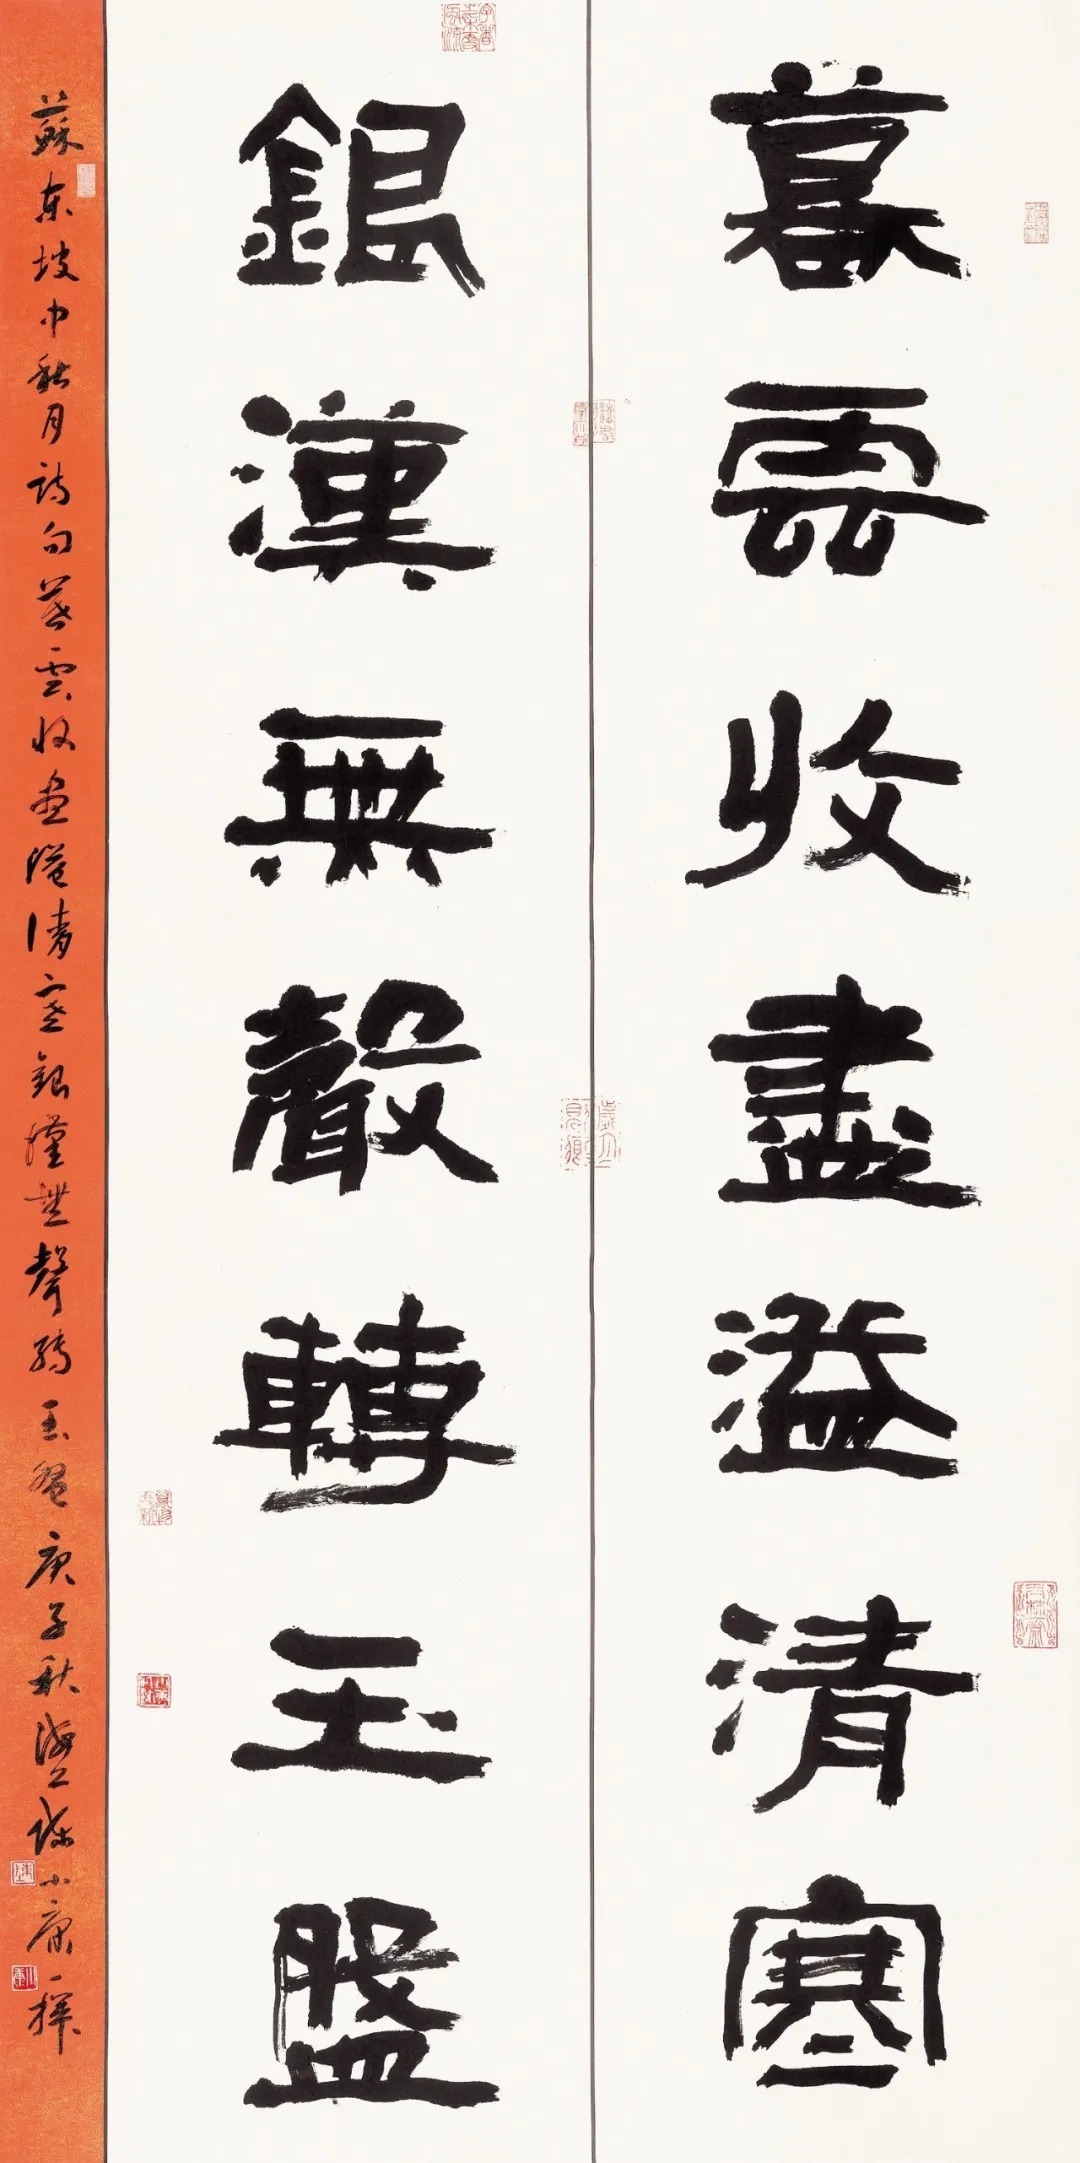 暮雲收盡溢清寒
銀漢無聲轉玉盤
蘇東坡中秋月詩句暮雲收盡溢清寒銀漢無聲轉玉盤庚子秋海上張小康一揮